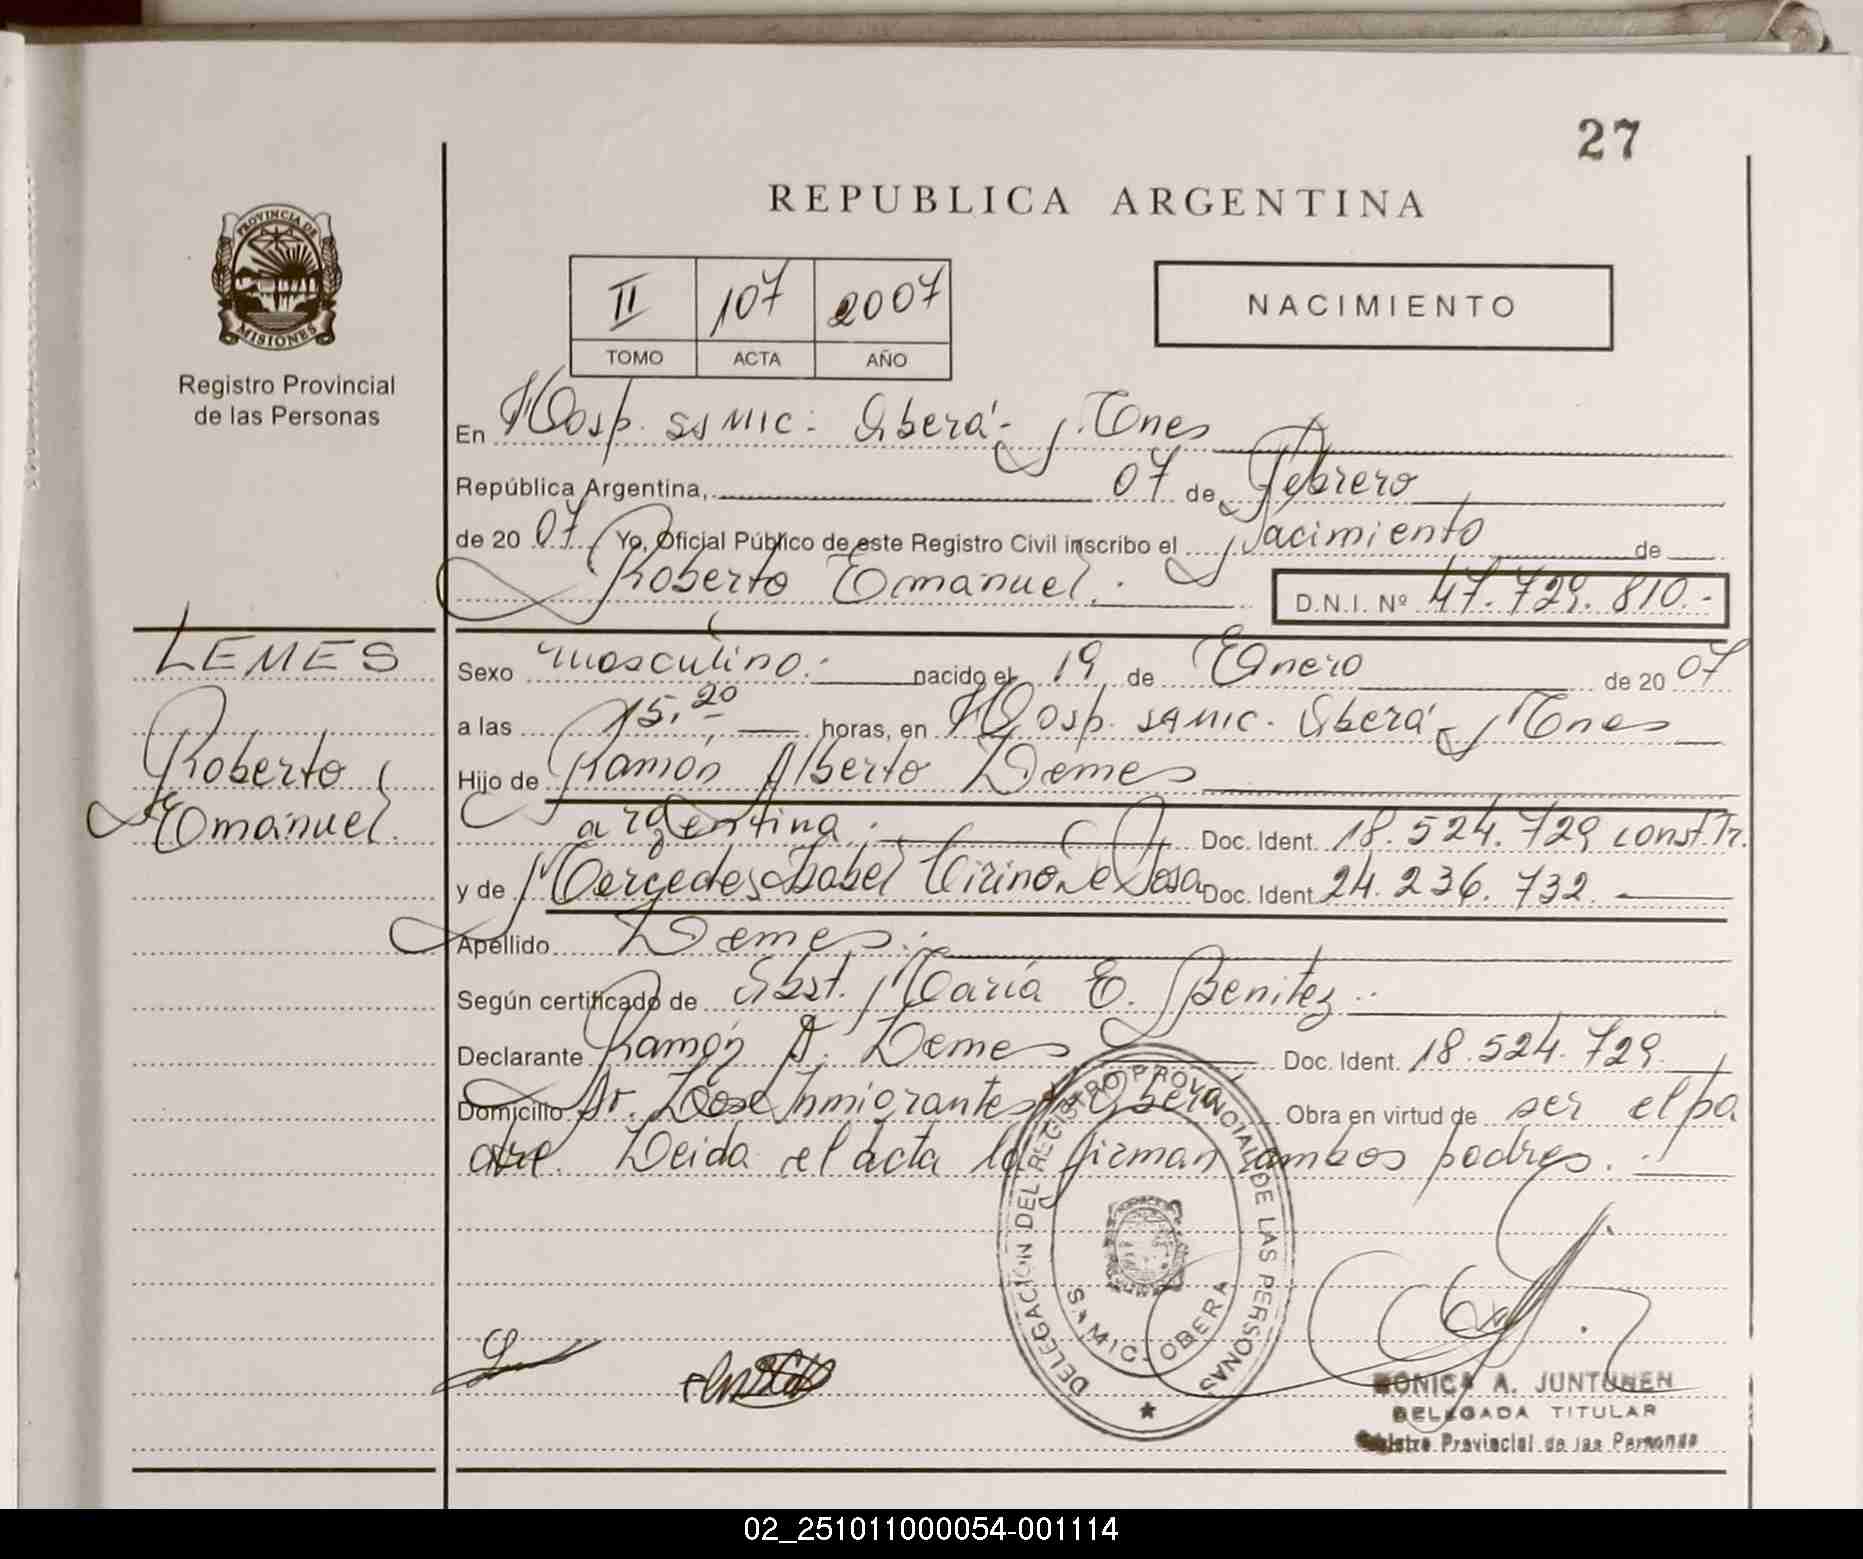 27
REPUBLICA ARGENTINA
PROVINCIA DE
MISIONES
Registro Provincial
de las Personas
II 107 2007
TOMO ACTA AÑO
NACIMIENTO
En Hosp. SAMIC: Oberá- Mnes
República Argentina, 07 de Febrero
de 2007 Yo, Oficial Público de este Registro Civil inscribo el Nacimiento de
Roberto Emanuel. D.N.I. Nº 47.729.810.-
LEMES
Roberto
Emanuel.
Sexo masculino.- nacido el 19 de Enero de 2007
a las 15,20 horas, en Hosp. SAMIC. Oberá- Mnes
Hijo de Ramón Alberto Lemes
argentina. Doc. Ident. 18.524.729 const.Tr.
y de Mercedes Isabel Cirino De Sosa Doc. Ident. 24.236.732.
Apellido Lemes.-
Según certificado de Obst. María E. Benitez.-
Declarante Ramón A. Lemes Doc. Ident. 18.524.729.
Domicilio Inmigrantes Oberá Obra en virtud de ser el pa
dre. Leida el acta la firman ambos padres.-
DELEGACION DEL REGISTRO PROVINCIAL DE LAS PERSONAS
SAMIC. OBERA
MONICA A. JUNTUNEN
DELEGADA TITULAR
Registro Provincial de las Personas
02_251011000054-001114